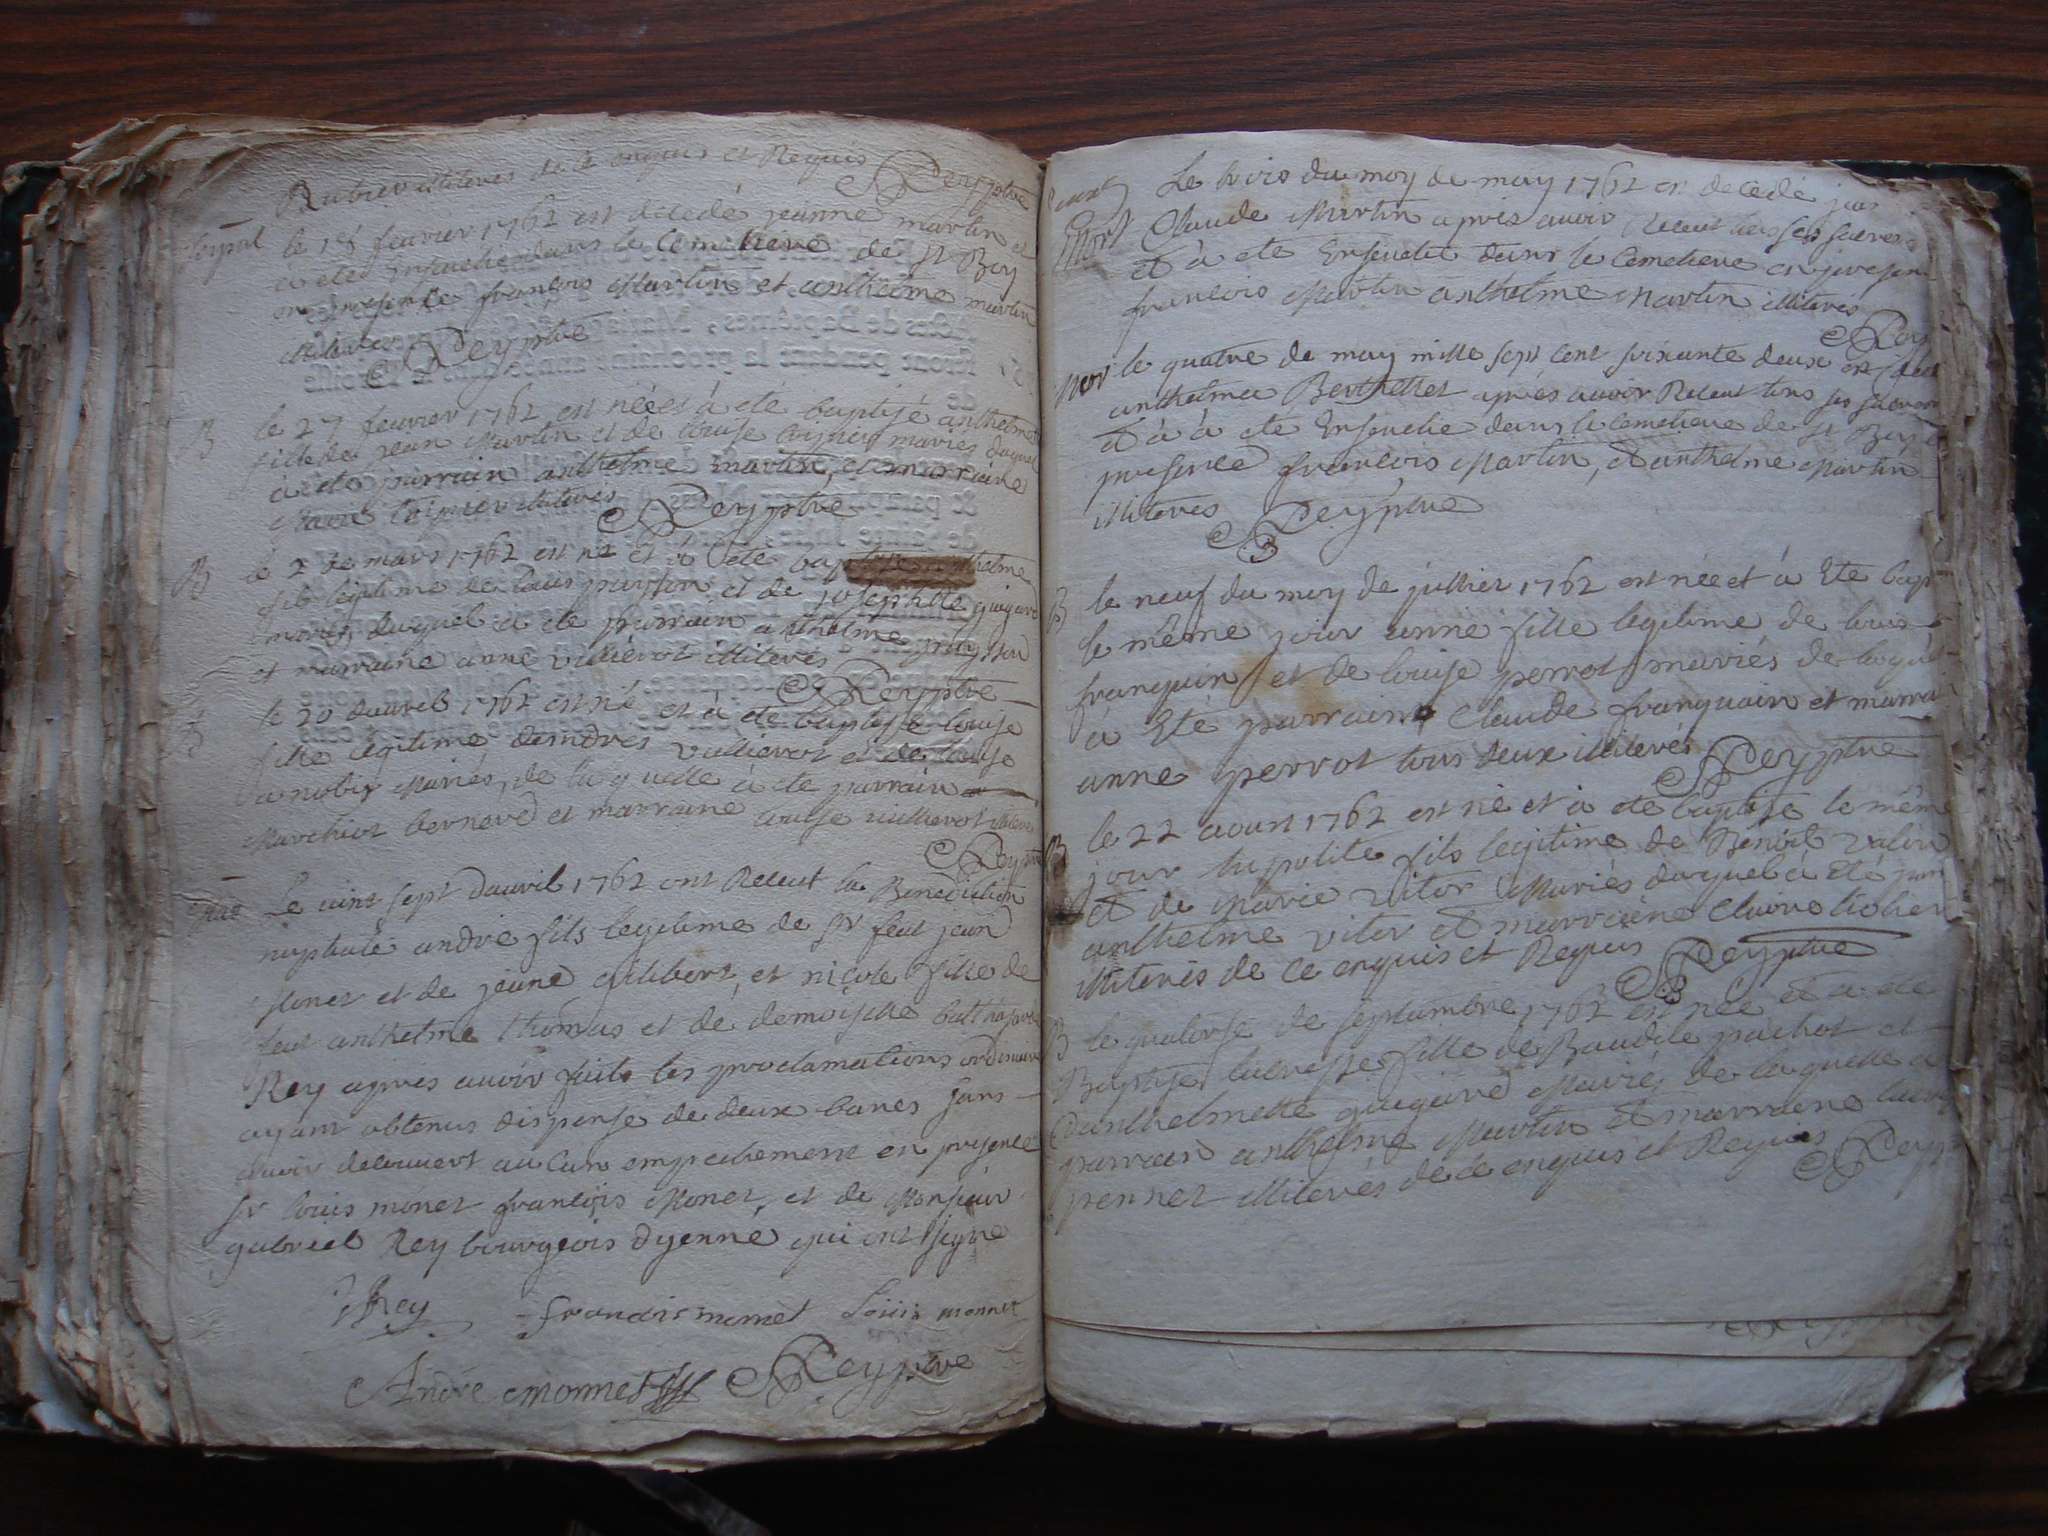 Rubier illiteres de ce enquis et Requis
Rey ptre
le 18 fevrier 1762 est décédé jeanne martin et
a eté ensevelie dans le Cemetiere de St Boy
en presence françois Martin et anthelme martin
illiteres Rey ptre
B le 27 fevrier 1762 est née et à eté baptisé anthelmette
fille de jean Martin et de louise mariés duquel
à eté parrain anthelme martin, et marraine
illiteres Rey ptre
B le 2 de mars 1762 est né et à eté baptisé anthelme
fils legitime de Louis puysson et de josephette guigard
mariés, duquel a eté parrain anthelme puysson
et marraine anne vullierot illiterés
Rey ptre
B le 20 d'avril 1762 est né et à eté baptisé louise
fille legitime d'andres vullierot et de louise
mariés, de laquelle à eté parrain
Marchiot bernard et marraine louise vullierot illiteres
Rey ptre
Le vint sept d'avril 1762 ont Receut la Benediction
nuptiale andre fils legitime de Sr feut jean
Monet et de jeane Gilibert, et nicole fille de
feut anthelme thomas et dé demoiselle balthasarde
Rey apres avoir faits les proclamations ordinaires
ayant obtenus dispense de deux bancs sans
avoir decouvert aucun empechement en presence
Sr louis monet françois Monet, et de Monsieur
gabriel Rey bourgeois dyenne, qui ont signé
Rey françois monnet Louis monnet
André monnet Rey ptre
Le trois du moy de may 1762 est decedé
Mort Claude Martin apres avoir Receut tous ses sacrem
et à eté Ensevelit dans le Cemetiere en presen
francois Martin anthelme Martin illiterés
Rey
Mort le quatre de may mille sept cent soixante deux est
anthelma Berthellet après avoir Receut tous ses sacrem
et à à eté Ensevelie dans le Cemetiere de St Boy
presence françois Martin, et anthelme Martin
illiterés Rey ptre
B le neuf du moy de jullier 1762 est née et à Eté bap
le même jour anne fille legitime de louis
franquin et de louise perrot mariés de laquel
à Eté parrain Claude franquin et marrai
anne perrot tous deux illiterés Rey ptre
B le 22 aoust 1762 est né et à eté baptisé le même
jour hypolite fils legitime de Benoit
et de Marie vitor Mariés duquel à Eté par
anthelme vitor et marraine Claire
illiterés de ce enquis et Requis Rey ptre
B le quatorse de septambre 1762 est née et a eté
Baptisé lucresse fille de Baudile pachot et
d'anthelmette guigard Mariés de laquelle à
parrain anthelme Martin et marraine
pernet illiterés de ce enquis et Requis Rey